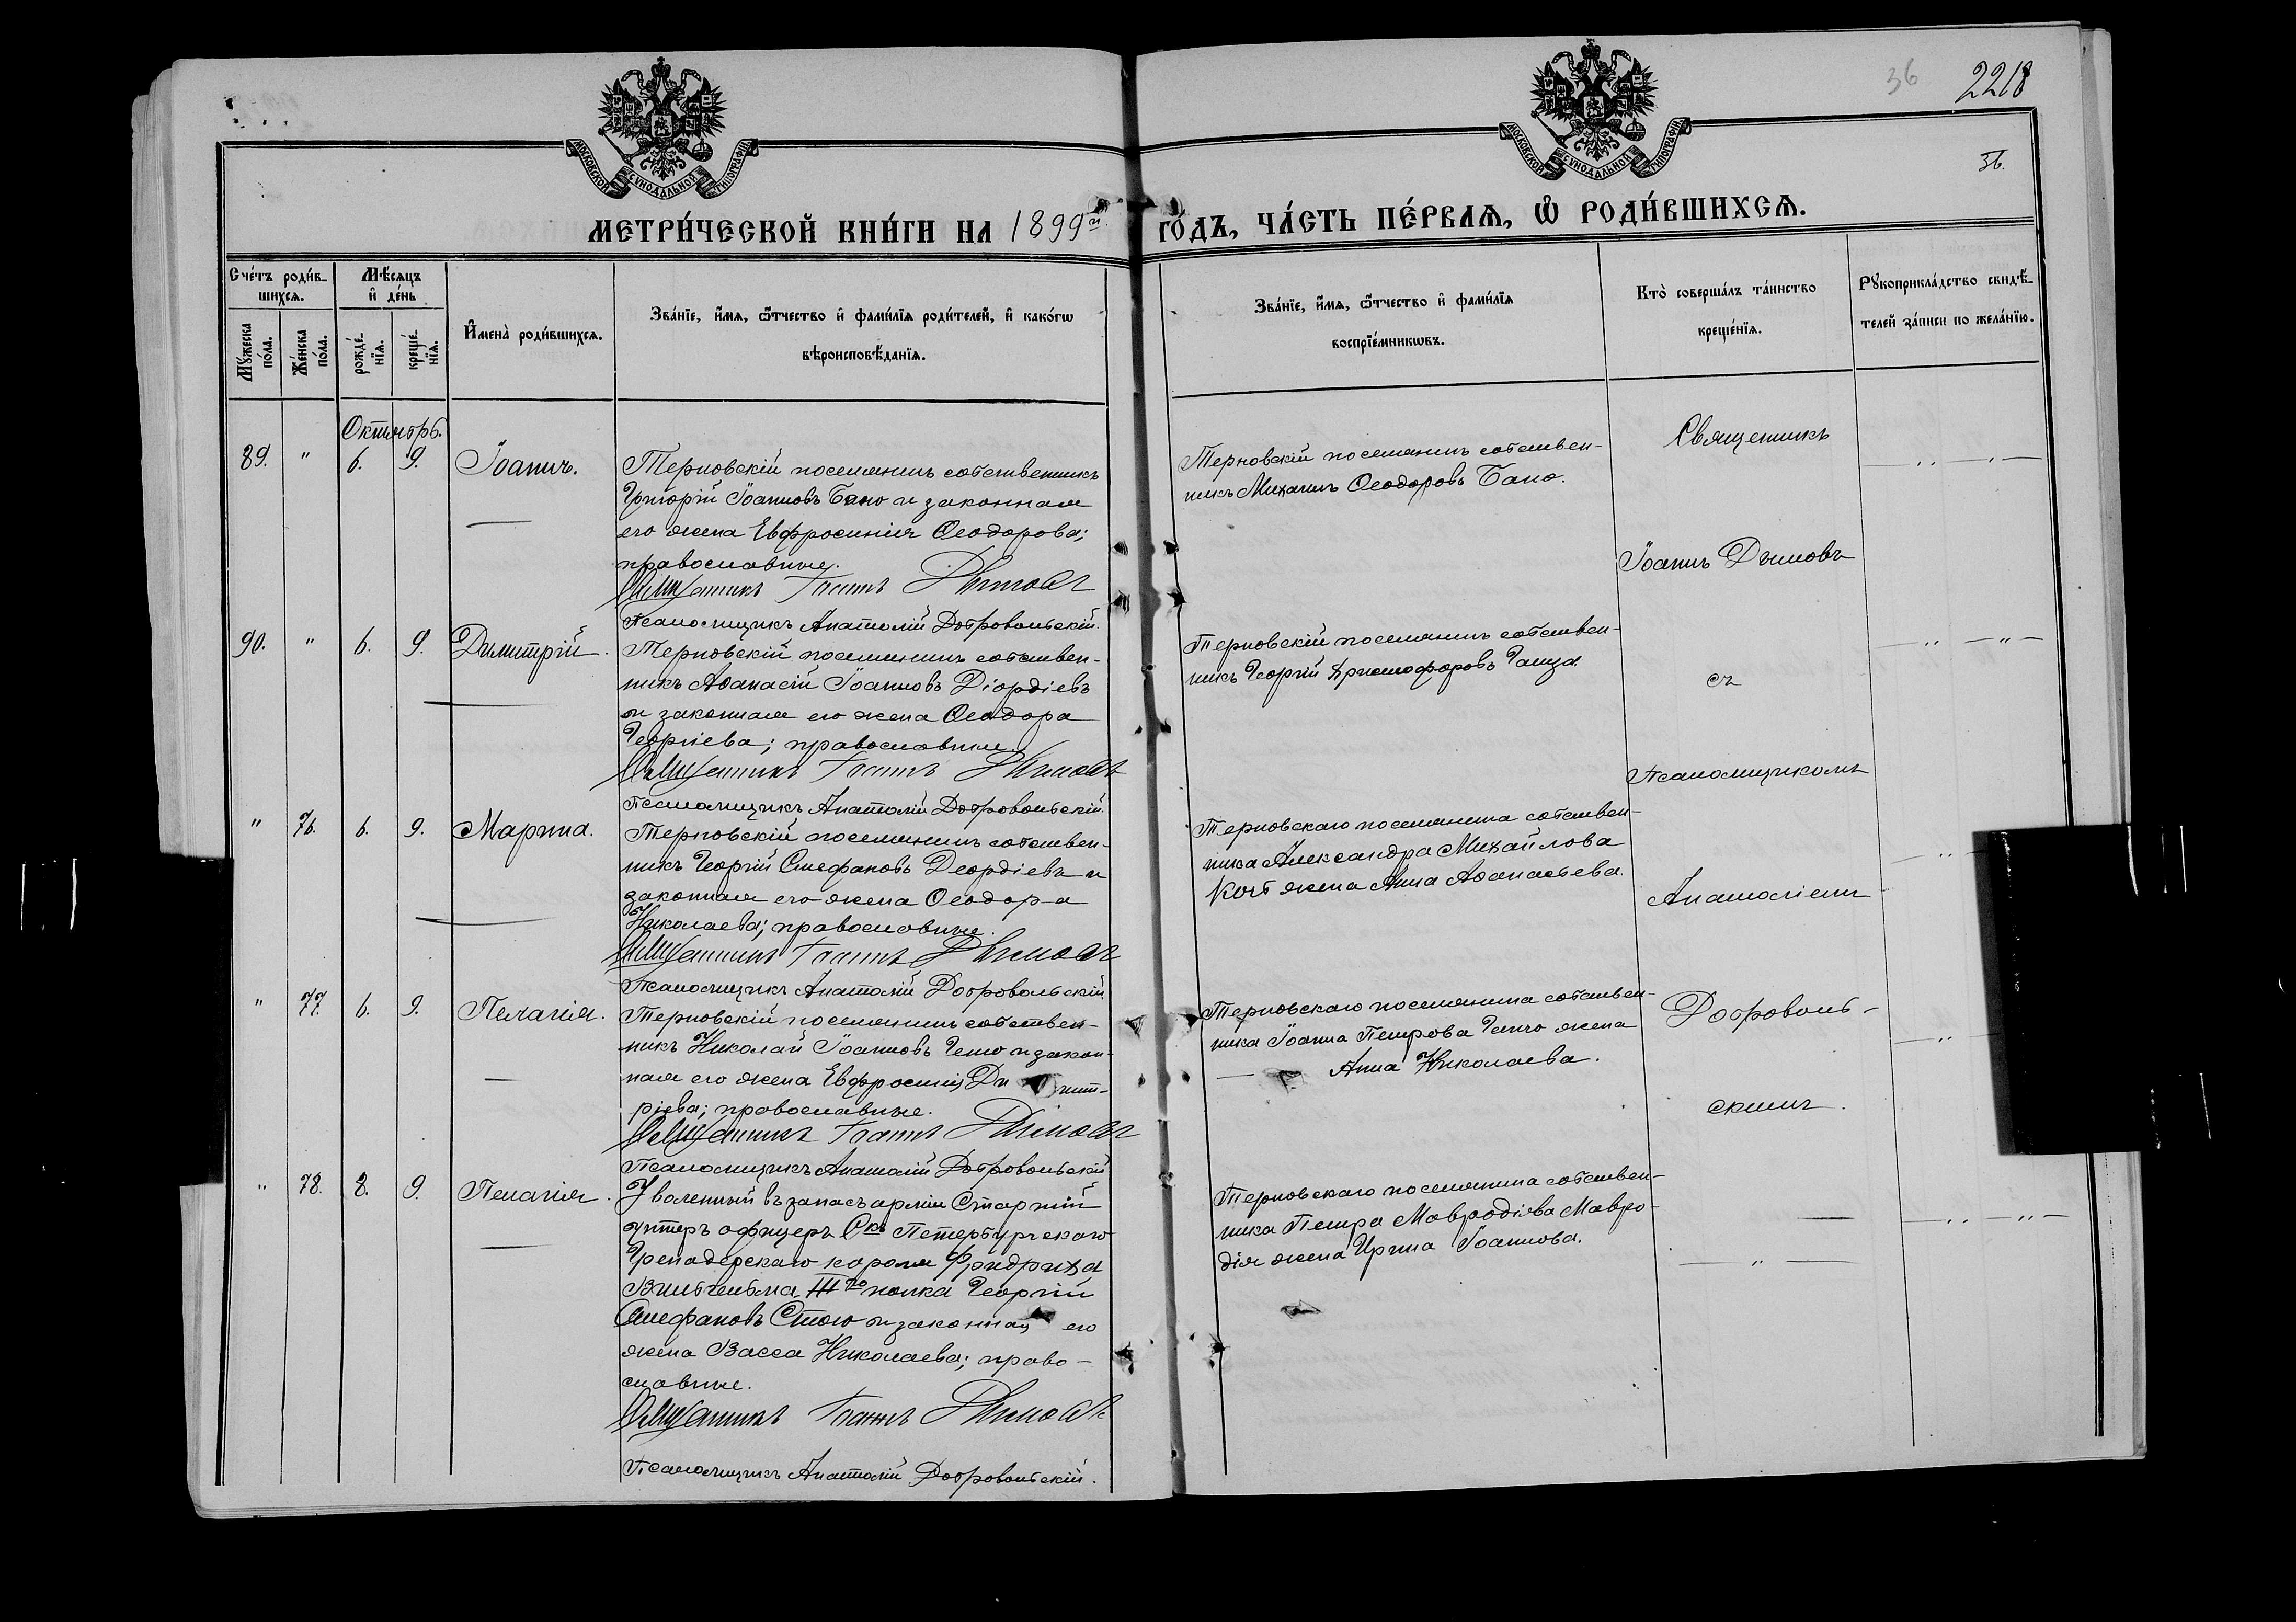 36 2218
36.
МОСКОВСКОЙ СѴНОДАЛЬНОЙ ТИПОГРАФІИ
МОСКОВСКОЙ СѴНОДАЛЬНОЙ ТИПОГРАФІИ
МЕТРИ́ЧЕСКОЙ КНИ́ГИ НА 1899й ГО́ДЪ, ЧА́СТЬ ПЕ́РВАѦ, Ѿ РОДИ́ВШИХСѦ.
Сче́тъ роди́в-
шихсѧ.
Мѣ́сѧцъ
и҆ де́нь
Мꙋ́жеска
по́ла.
Же́нска
по́ла.
рожде́-
нїѧ.
креще́-
нїѧ.
И҆мена̀ роди́вшихсѧ.
Зва́нїе, и҆́мѧ, ѻ҆́тчество и҆ фами́лїѧ роди́телей, и҆ како́гѡ
вѣроисповѣ́данїѧ.
Зва́нїе, и҆́мѧ, ѻ҆́тчество и҆ фами́лїѧ
воспрїе́мникѡвъ.
Кто̀ соверша́лъ та́инство
креще́нїѧ.
Рꙋкоприкла́дство свидѣ́-
телей за́писи по жела́нїю.
Октябрь.
89. " 6. 9. Іоаннъ.
Терновскій поселянинъ собственникъ
Григорій Іоанновъ Бано и законная
его жена Евфросинія Ѳеодорова;
православные.
Священникъ Іоаннъ Дымовъ
Псаломщикъ Анатолій Добровольскій.
Терновскій поселянинъ собствен-
никъ Михаилъ Ѳеодоровъ Бано.
Священникъ
Іоаннъ Дымовъ
90. " 6. 9. Димитрій.
Терновскій поселянинъ собствен-
никъ Аѳанасій Іоанновъ Діордіевъ
и законная его жена Ѳеодора
Георгіева; православные.
Священникъ Іоаннъ Дымовъ
Псаломщикъ Анатолій Добровольскій.
Терновскій поселянинъ собствен-
никъ Георгій Христофоровъ
съ
Псаломщикомъ
" 76. 6. 9. Марина.
Терновскій поселянинъ собствен-
никъ Георгій Стефановъ Деордіевъ и
законная его жена Ѳеодора
Николаева; православные.
Священникъ Іоаннъ Дымовъ
Псаломщикъ Анатолій Добровольскій
Терновскаго поселянина собствен-
ника Александра Михайлова
жена Анна Аѳанасьева.
Анатоліемъ
" 77. 6. 9. Пелагія.
Терновскій поселянинъ собствен-
никъ Николай Іоанновъ и закон-
ная его жена Евфросинія Димит-
ріева; православные.
Священникъ Іоаннъ Дымовъ
Псаломщикъ Анатолій Добровольскій
Терновскаго поселянина собствен-
ника Іоанна Петрова жена
Анна Николаева.
Доброволь-
скимъ.
" 78. 8. 9. Пелагія.
Уволенный въ запасъ арміи Старшій
унтеръ офицеръ Скъ Петербургскаго
Гренадерскаго короля Фридриха
Вильгельма III го полка Георгій
Стефановъ Стого и законная его
жена Васса Николаева; право-
славные.
Священникъ Іоаннъ Дымовъ
Псаломщикъ Анатолій Добровольскій.
Терновскаго поселянина собствен-
ника Петра Мавродіева Мавро-
дія жена Ирина Іоаннова.